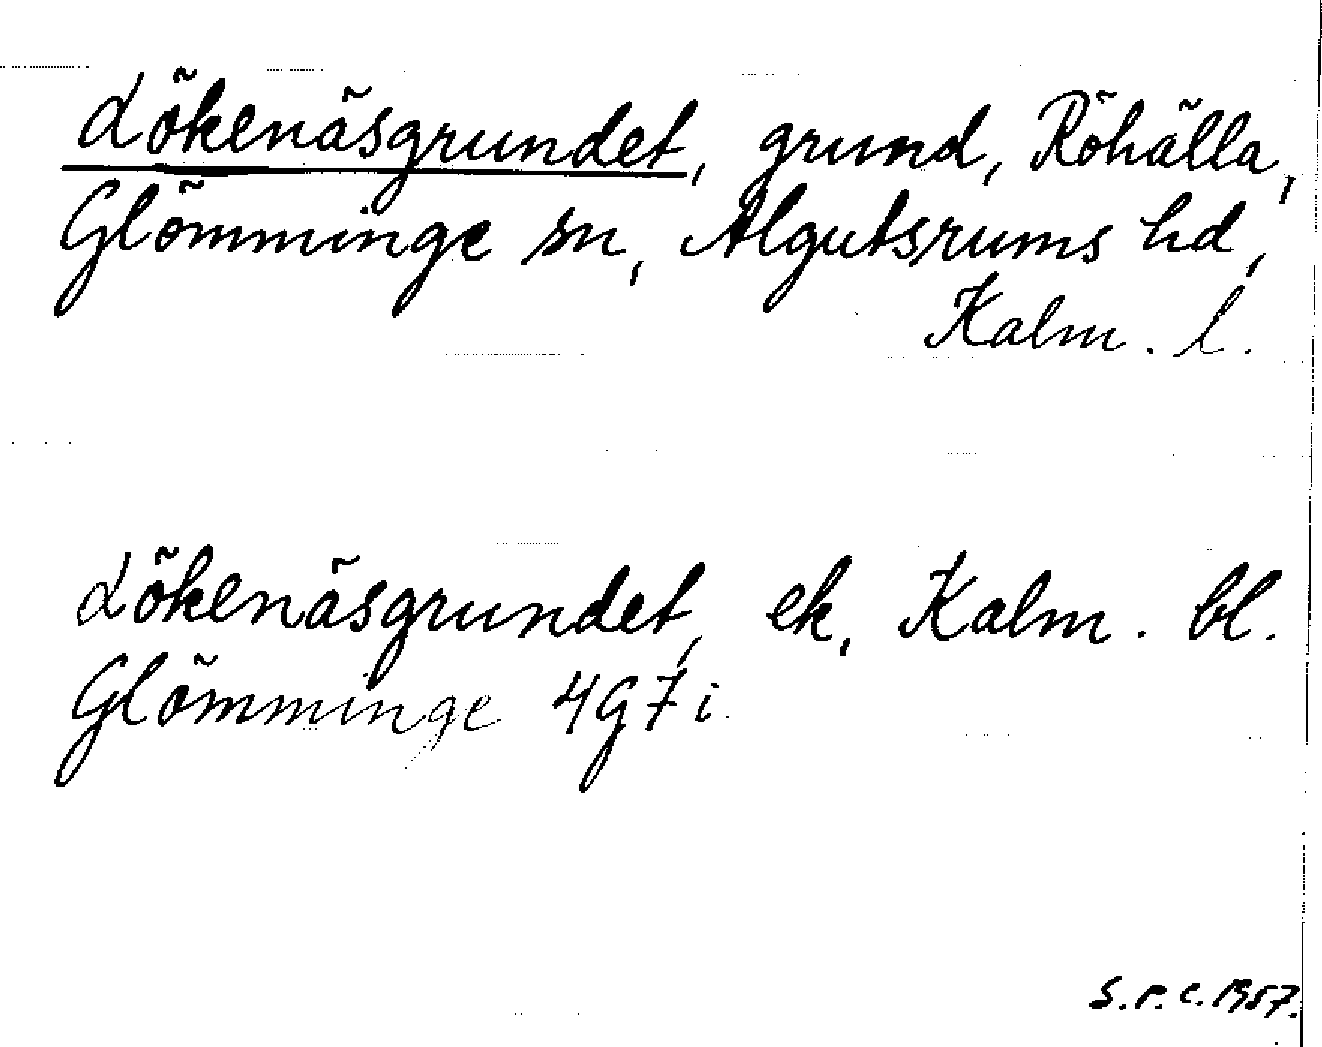 Lökenäsgrundet, grund, Röhälla,
Glömminge sn, Algutsrums hd,
Kalm. l.
Lökenäsgrundet, ek, Kalm. bl.
Glömminge 4G7i
S.P.C. 1957.